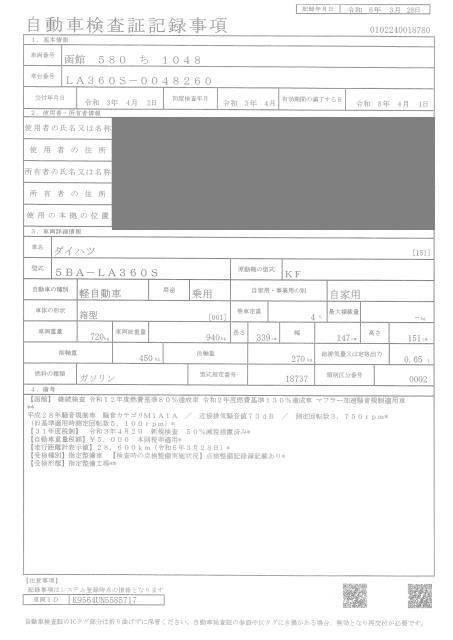 記録年月日 令和 6年 3月 28日
自動車検査証記録事項
0102240018780
1. 基本情報
車両番号 函館 580 ち 1048
車台番号 LA360S-0048260
交付年月日 令和 3年 4月 2日 初度検査年月 令和 3年 4月 有効期間の満了する日 令和 8年 4月 1日
2. 使用者・所有者情報
使用者の氏名又は名称
使用者の住所
所有者の氏名又は名称
所有者の住所
使用の本拠の位置
3. 車両詳細情報
車名 ダイハツ [151]
型式 5BA-LA360S 原動機の型式 KF
自動車の種別 軽自動車 用途 乗用 自家用・事業用の別 自家用
車体の形状 箱型 [001] 乗車定員 4人 最大積載量 -kg
車両重量 720kg 車両総重量 940kg 長さ 339cm 幅 147cm 高さ 151cm
前軸重 450kg 後軸重 270kg 総排気量又は定格出力 0.65 L
燃料の種類 ガソリン 型式指定番号 18737 類別区分番号 0002
4. 備考
【函館】 継続検査 令和12年度燃費基準80%達成車 令和2年度燃費基準130%達成車 マフラー加速騒音規制適用車
**
平成28年騒音規制車 騒音カテゴリM1A1A / 近接排気騒音値73dB / 測定回転数3,750rpm*
(旧基準適用時測定回転数5,100rpm)*
【31年度税制】 令和3年4月2日 新規検査 50%減税措置済み*
【自動車重量税額】¥5,000 本則税率適用*
【走行距離計表示値】28,600km(令和6年3月28日)*
【受検種別】指定整備車 【検査時の点検整備実施状況】点検整備記録簿記載あり*
【受検形態】指定整備工場**
【注意事項】
記録事項はシステム登録時点の情報となります
車両ID K9564UN5585717
自動車検査証のICタグ部分は折り曲げずに保管ください。自動車検査証の券面やICタグにき損がある場合、無効となり再交付が必要です。